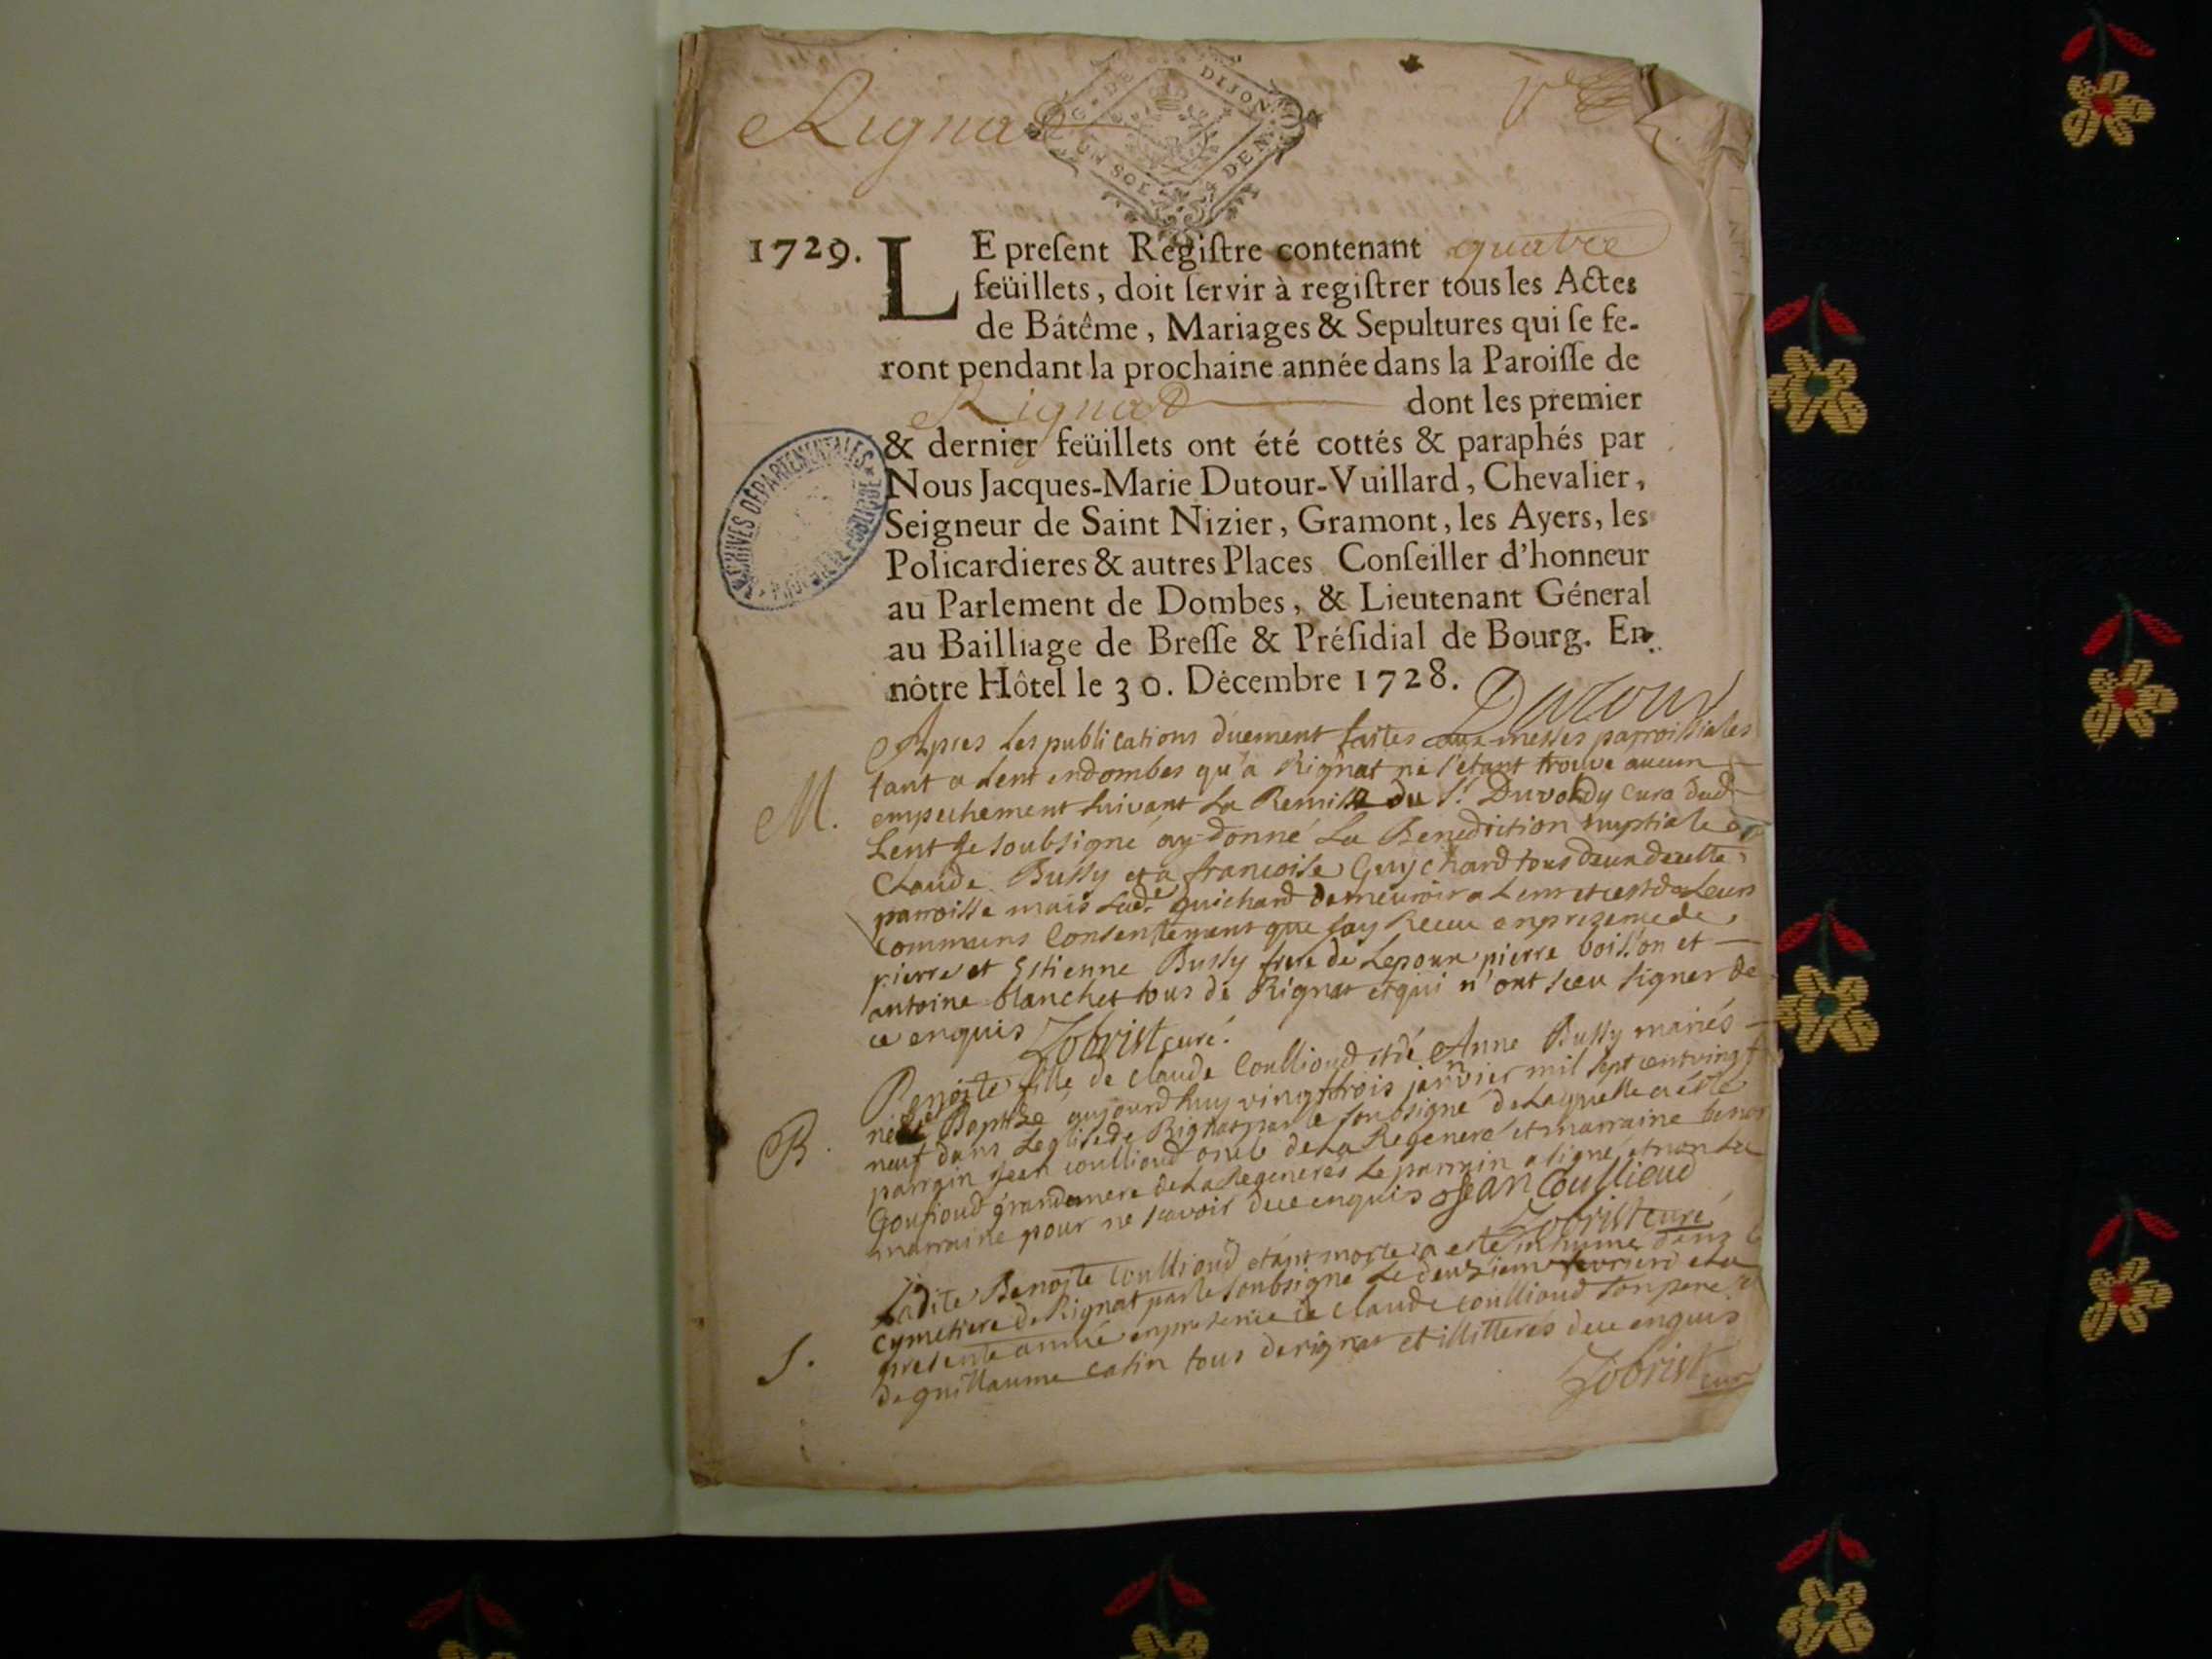 Rignat
G. DE DIJON
UN SOL
DEN
1729. LE preſent Regiſtre contenant quatre
feüillets, doit ſervir à regiſtrer tous les Actes
de Bátême, Mariages & Sepultures qui ſe fe-
ront pendant la prochaine année dans la Paroiſſe de
Rignat dont les premier
& dernier feüillets ont été cottés & paraphés par
ARCHIVES DÉPARTEMENTALES
Nous Jacques-Marie Dutour-Vuillard, Chevalier,
Seigneur de Saint Nizier, Gramont, les Ayers, les
Policardieres & autres Places Conſeiller d'honneur
au Parlement de Dombes, & Lieutenant Géneral
au Bailliage de Breſſe & Préſidial de Bourg. En
nôtre Hôtel le 30. Décembre 1728.
Dutour
Apres les publications duement faites aux messes parroissiales
tant a Lent endombes qu'a Rignat ne s'etant trouvé aucun
M. empechement suivant La Remise du Sr. curé dud
Lent Je soubsigné ay donné La Benediction nuptiale a
Claude Bussy et a francoise Guychard tous deux de cette
parroisse mais lade guichard demeuroit a Lent et cest de Leurs
communs Consentement que jay Receu en presence de
pierre et Estienne Bussy frere de Lepoux pierre boisson et
antoine blanchet tous de Rignat et qui n'ont sceu signer de
ce enquis Zobrist curé.
Benoite fille de claude Coullioud et de Anne Bussy mariés
née Baptisée aujourdhuy vingttrois janvier mil sept cent vingt
B. neuf dans Leglise de Rignat par le soubsigné de Laquelle a esté
parrain Jean coullioud oncle de La Regeneré et marraine
Goufioud grandemere de La Regenerés Le parrain a signé et non La
marraine pour ne scavoir de ce enquis Jean Coullioud
Zobrist curé
Ladite Benoite Coullioud etant morte a esté inhumé dans
cymetiere de Rignat par le soubsigné Le deuxieme fevrier de La
presente année en presence de claude coullioud son pere
S. de guillaume catin tous de rignat et illitterés de ce enquis
Zobrist curé